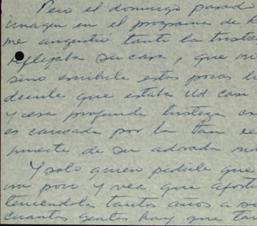 Pero el domingo pasado
imagen en el programa de
me angustió tanto la tristeza
reflejaba su cara, que no
sino escribirle estas pocas l
decirle que estaba Ud con
y esa profunda tristeza en
es causada por la tan re
muerte de su adorada ma
Y solo quiero pedirle que
un poco y vea que
teniéndola tantos años a su
cuantas gentes hay que tan